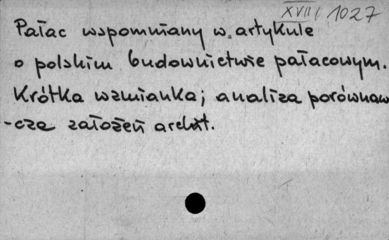 XVII/1027
Pałac wspomniany w artykule
o polskim budownictwie pałacowym.
Krótka wzmianka; analiza porównaw
-cza założeń archit.